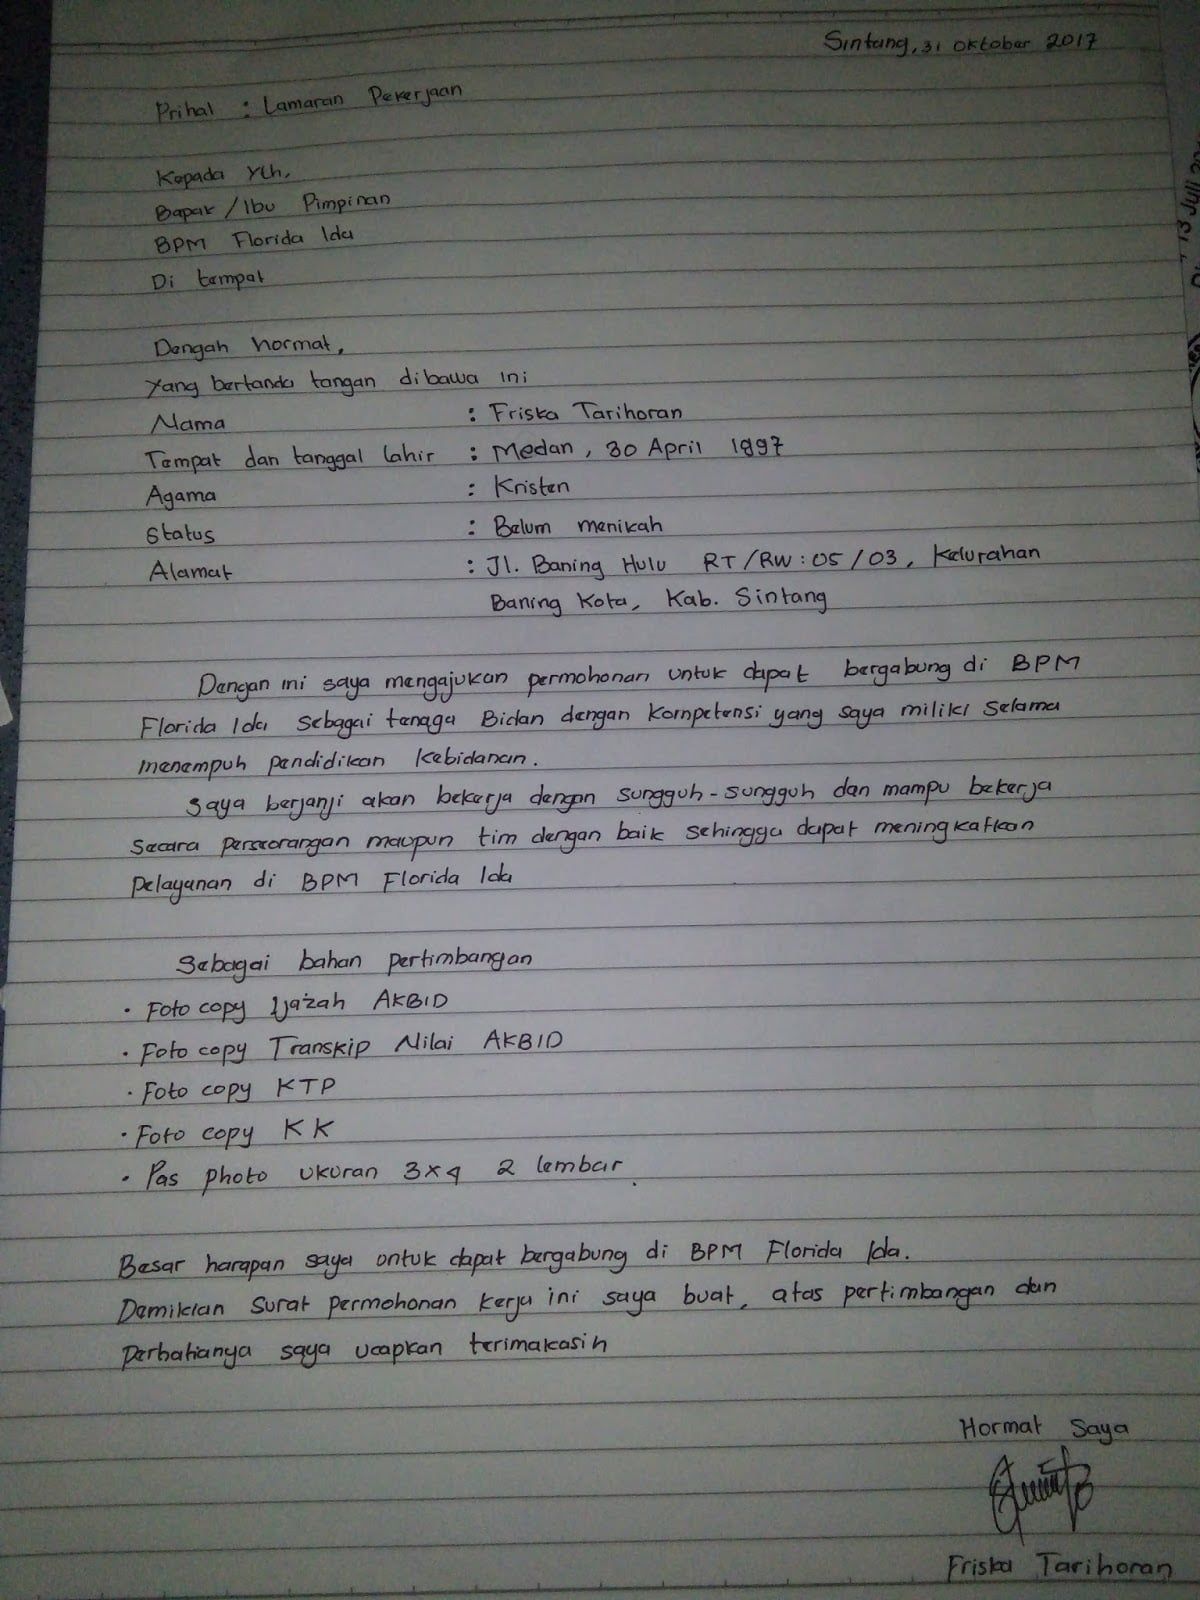 Sintang, 31 Oktober 2017
Prihal : Lamaran Pekerjaan
Kepada Yth,
Bapak / Ibu Pimpinan
BPM Florida Ida
Di tempat
Dengah hormat,
Yang bertanda tangan dibawa ini
Nama : Friska Tarihoran
Tempat dan tanggal lahir : Medan, 30 April 1997
Agama : Kristen
Status : Belum menikah
Alamat : Jl. Baning Hulu RT/RW : 05/03, Kelurahan
Baning Kota, Kab. Sintang
Dengan ini saya mengajukan permohonan untuk dapat bergabung di BPM
Florida Ida sebagai tenaga Bidan dengan Kompetensi yang saya miliki selama
menempuh pendidikan Kebidanan.
Saya berjanji akan bekerja dengan sungguh-sungguh dan mampu bekerja
Secara perseorangan maupun tim dengan baik sehingga dapat meningkatkan
Pelayanan di BPM Florida Ida
Sebagai bahan pertimbangan
• Foto copy Ijazah AKBID
• Foto copy Transkip Nilai AKBID
• Foto copy KTP
• Foto copy KK
• Pas photo ukuran 3x4 2 lembar.
Besar harapan saya ontuk dapat bergabung di BPM Florida Ida.
Demikian surat permohonan kerja ini saya buat, atas pertimbangan dan
Perhatianya saya ucapkan terimakasih
Hormat Saya
Friska Tarihoran
13 Juli